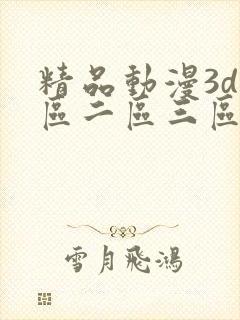 精品動漫3d
區二區三區
雪月飛鴻